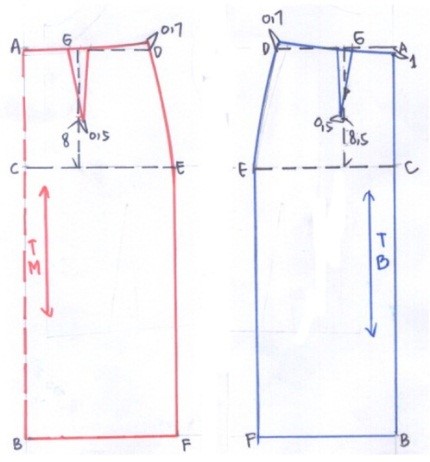 0,7
A G D
0,5
8
C E
T
M
B F
0,7
D G A
1
0,5
8,5
E C
T
B
F B